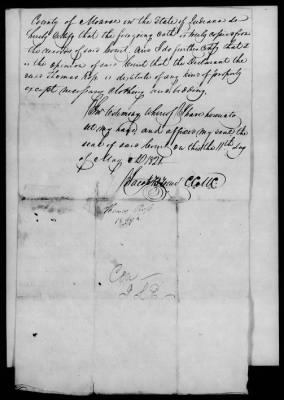 County of Monroe in the State of Indiana do
hereby Certify that the foregoing oath is truly copied from
the records of said Court. And I do further Certify that it
is the opinion of said Court that the Declarant the
said Thomas is destitute of any kind of property
except necessary Clothing and bedding.
In testimony whereof I have hereunto
set my hand and affixed my seal the
seal of said Court on this the 11th day
of May
Jacob CCMC
Thomas
Con